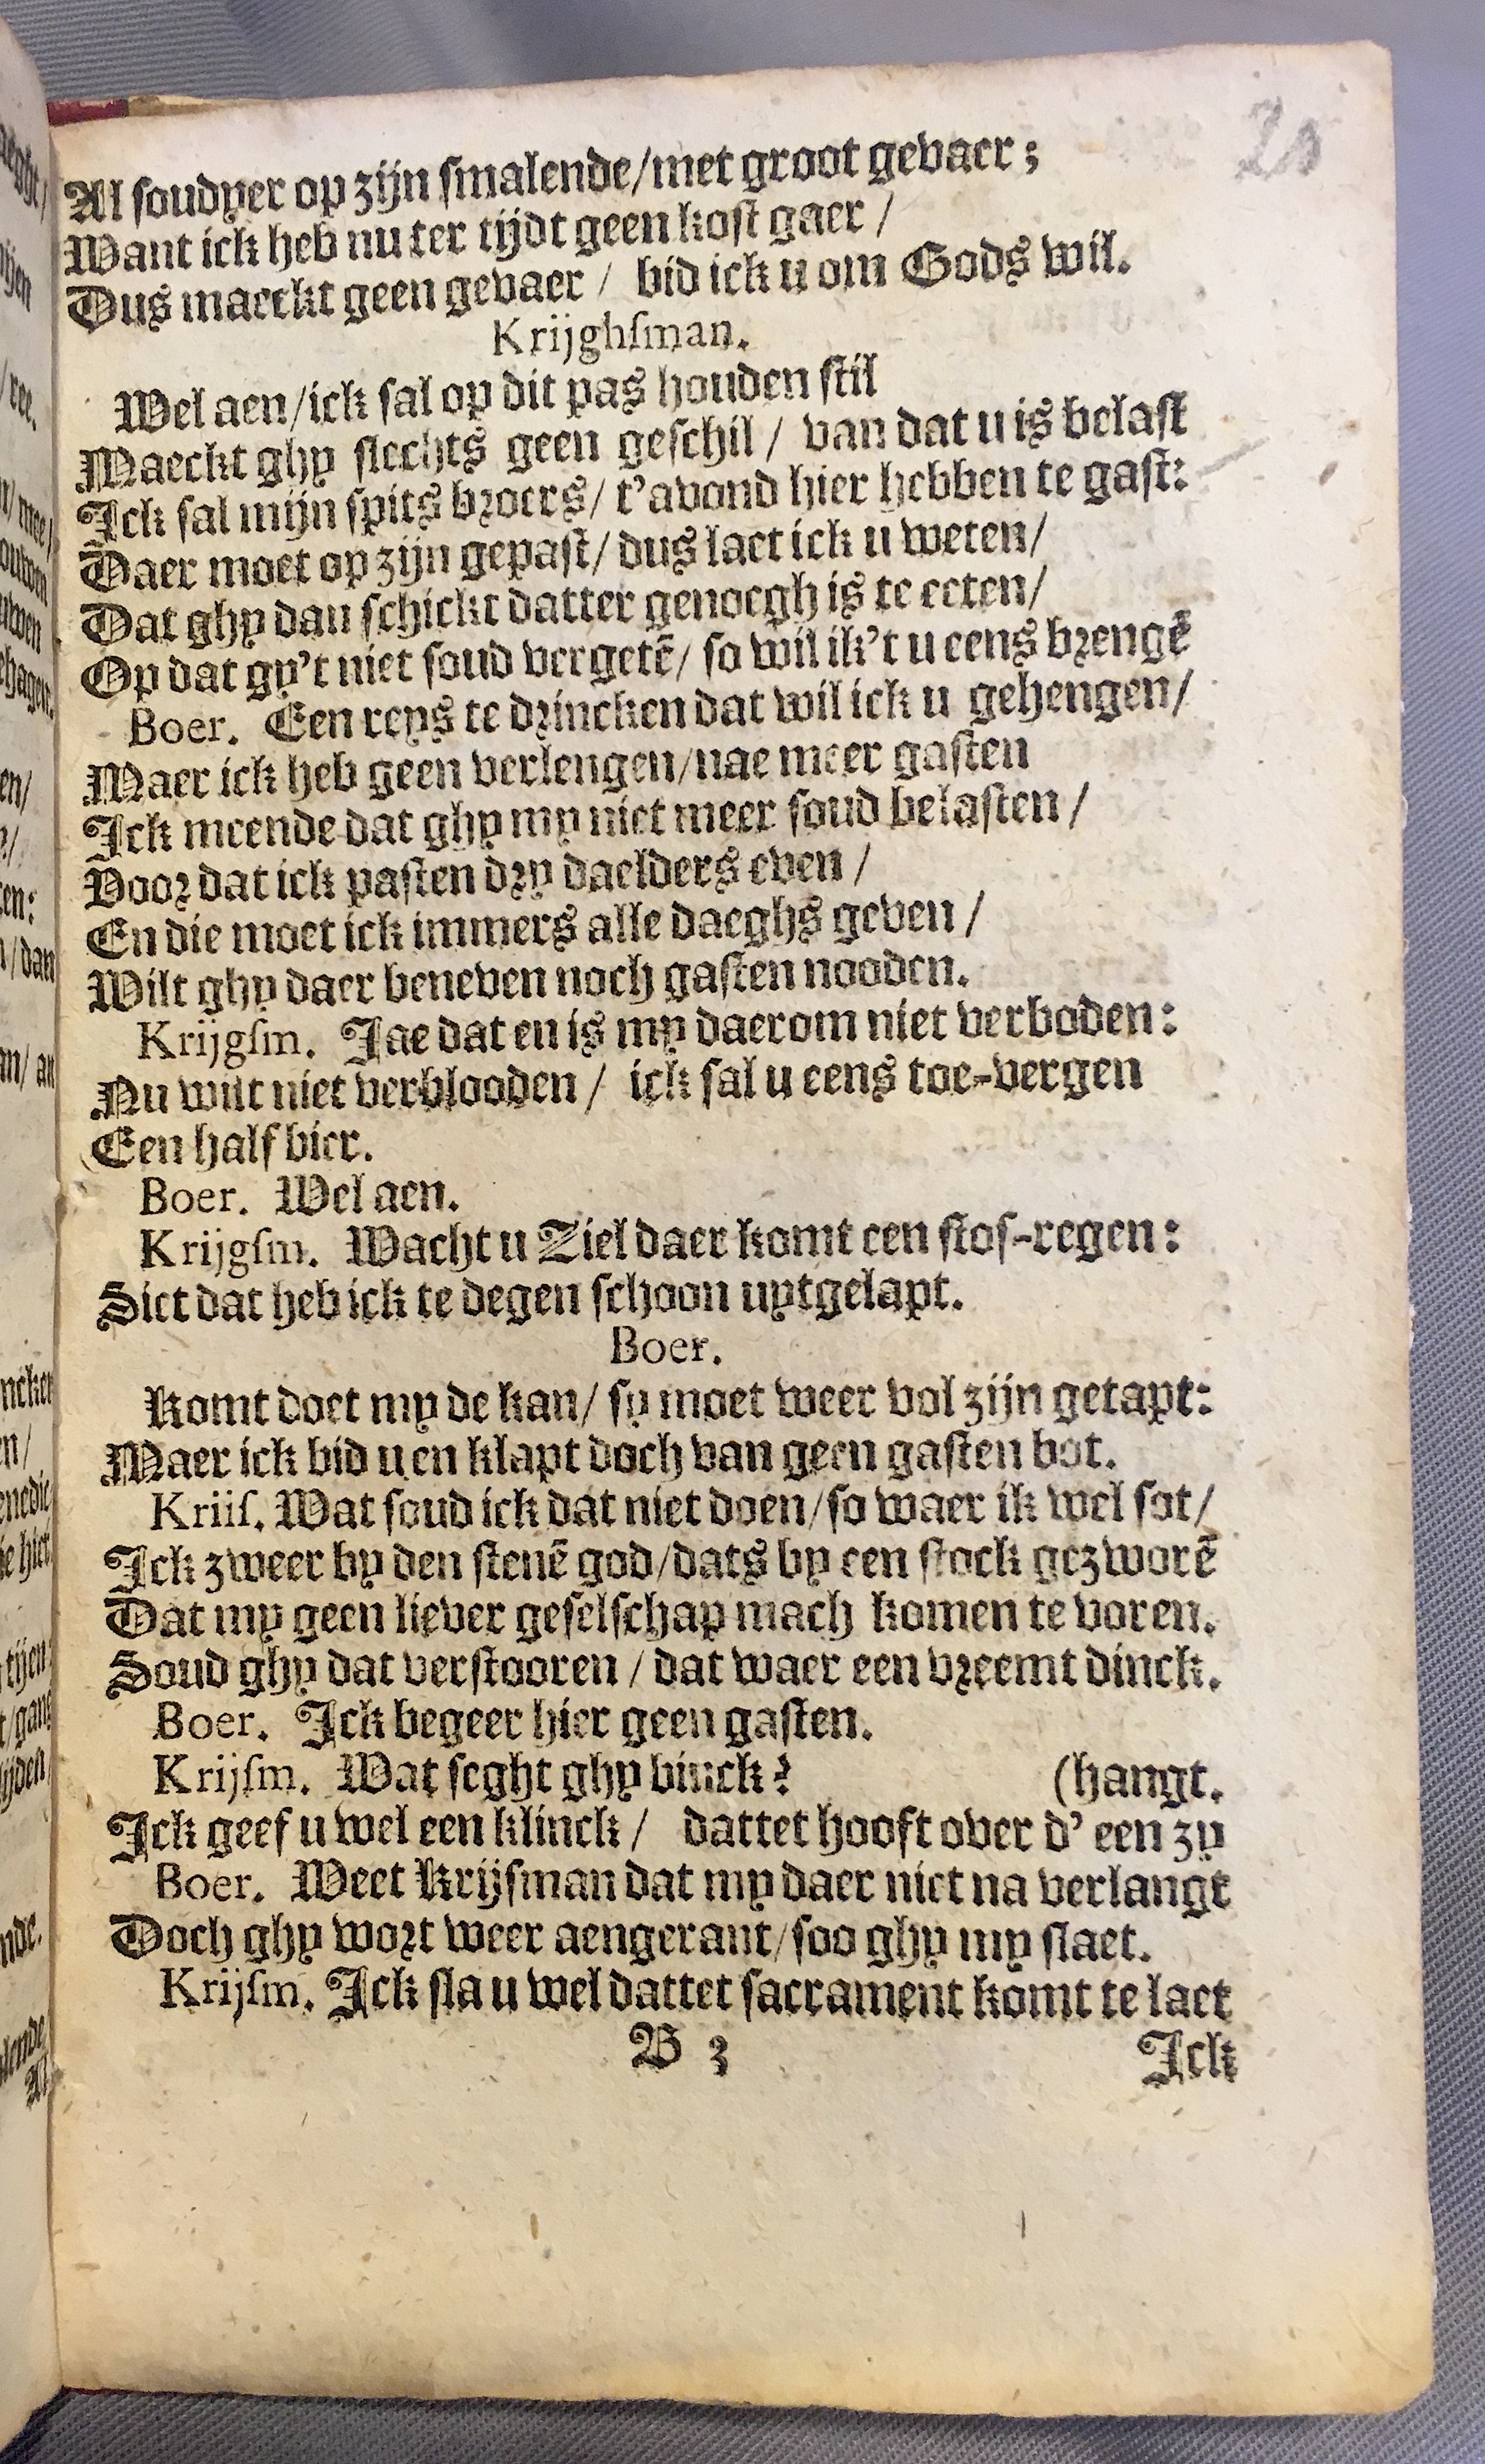 20
Al soudyer op zijn smalende/met groot gevaer;
Want ick heb nu ter tijdt geen kost gaer /
Dus maeckt geen gevaer / bid ick u om Gods wil.
Krijghſman.
Wel aen/ick sal op dit pas houden stil
Maeckt ghy slechts geen geschil / van dat u is belast
Ick sal mijn spits broers/ t'avond hier hebben te gast:
Daer moet op zijn gepast/ dus laet ick u weten/
Dat ghy dan schickt datter genoegh is te eeten/
Op dat gy't niet soud vergetē/ so wil ik't u eens brengē
Boer. Een reys te drincken dat wil ick u gehengen/
Maer ick heb geen verlengen/nae meer gasten
Ick meende dat ghy my niet meer soud belasten /
Voor dat ick pasten dry daelders even /
En die moet ick immers alle daeghs geven /
Wilt ghy daer beneven noch gasten nooden.
Krijgſm. Jae dat en is my daerom niet verboden:
Nu wilt niet verblooden / ick sal u eens toe-vergen
Een half bier.
Boer. Wel aen.
Krijgſm. Wacht u Ziel daer komt een stof-regen:
Siet dat heb ick te degen schoon uytgelapt.
Boer.
Komt doet my de kan/ sy moet weer vol zijn getapt:
Maer ick bid u en klapt doch van geen gasten bot.
Kriiſ. Wat soud ick dat niet doen/so waer ik wel sot/
Ick zweer by den stenē god/dats by een stock gezworē
Dat my geen liever geselschap mach komen te voren.
Soud ghy dat verstooren / dat waer een vreemt dinck.
Boer. Ick begeer hier geen gasten.
Krijſm. Wat seght ghy vinck? (hangt.
Ick geef u wel een klinck / dattet hooft over d' een zy
Boer. Weet Krijsman dat my daer niet na verlangt
Doch ghy wort weer aengerant/soo ghy my slaet.
Krijſm. Ick sla u wel dattet sacrament komt te laet
B 3
Ick